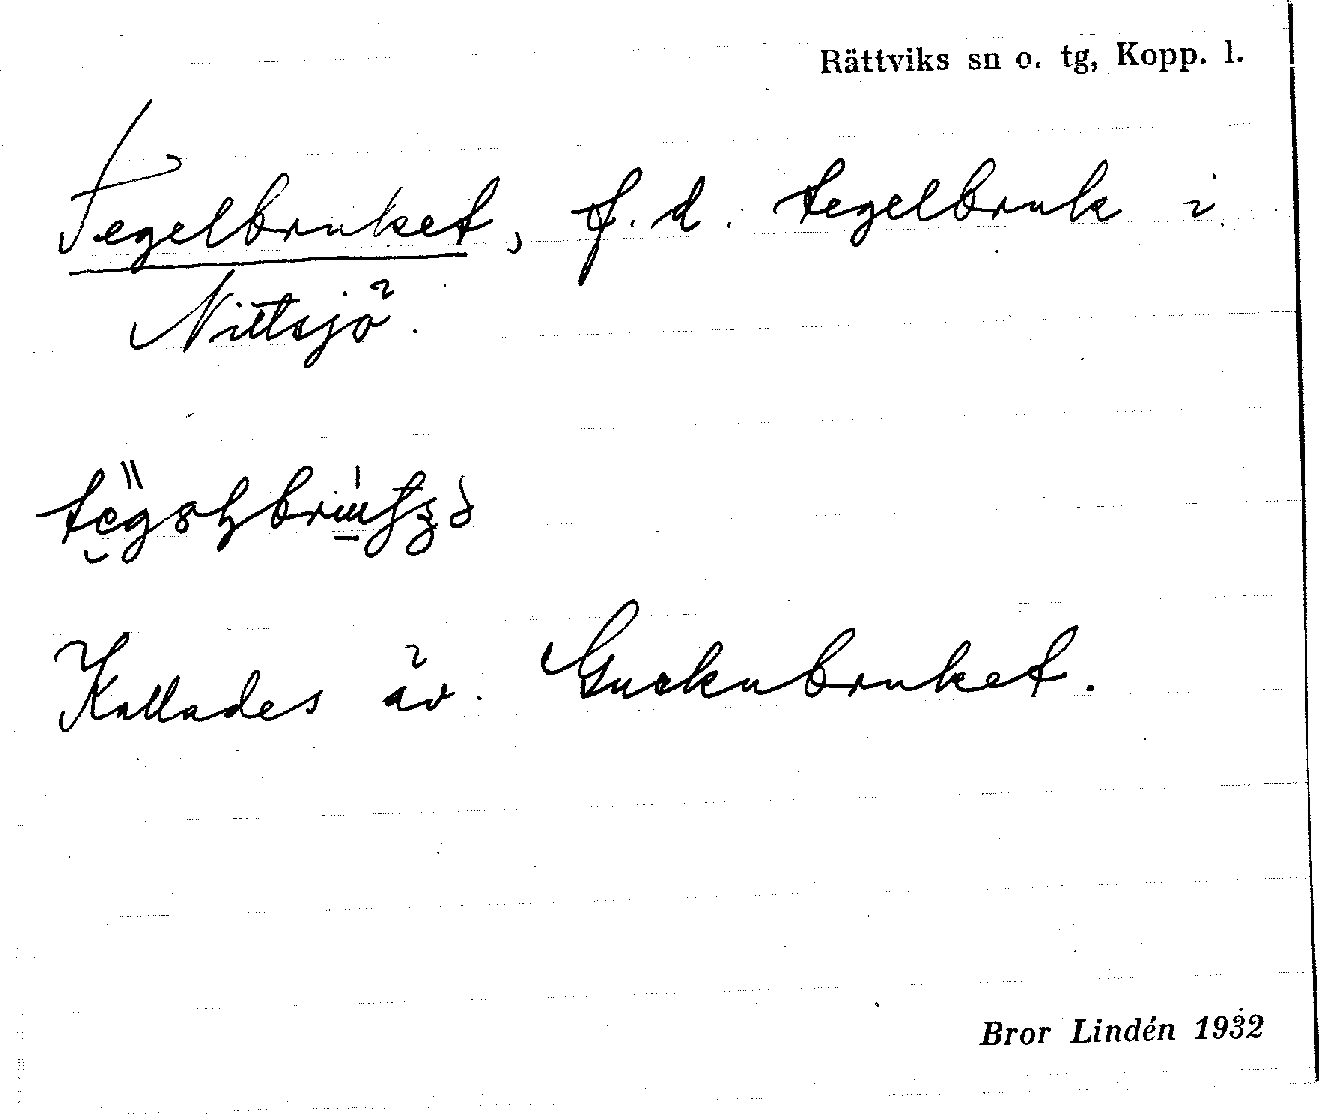 Rättviks sn o. tg, Kopp. l.
Tegelbruket, f. d. tegelbruk i
Nittsjö.
Kallades äv. Guckubruket.
Bror Lindén 1932